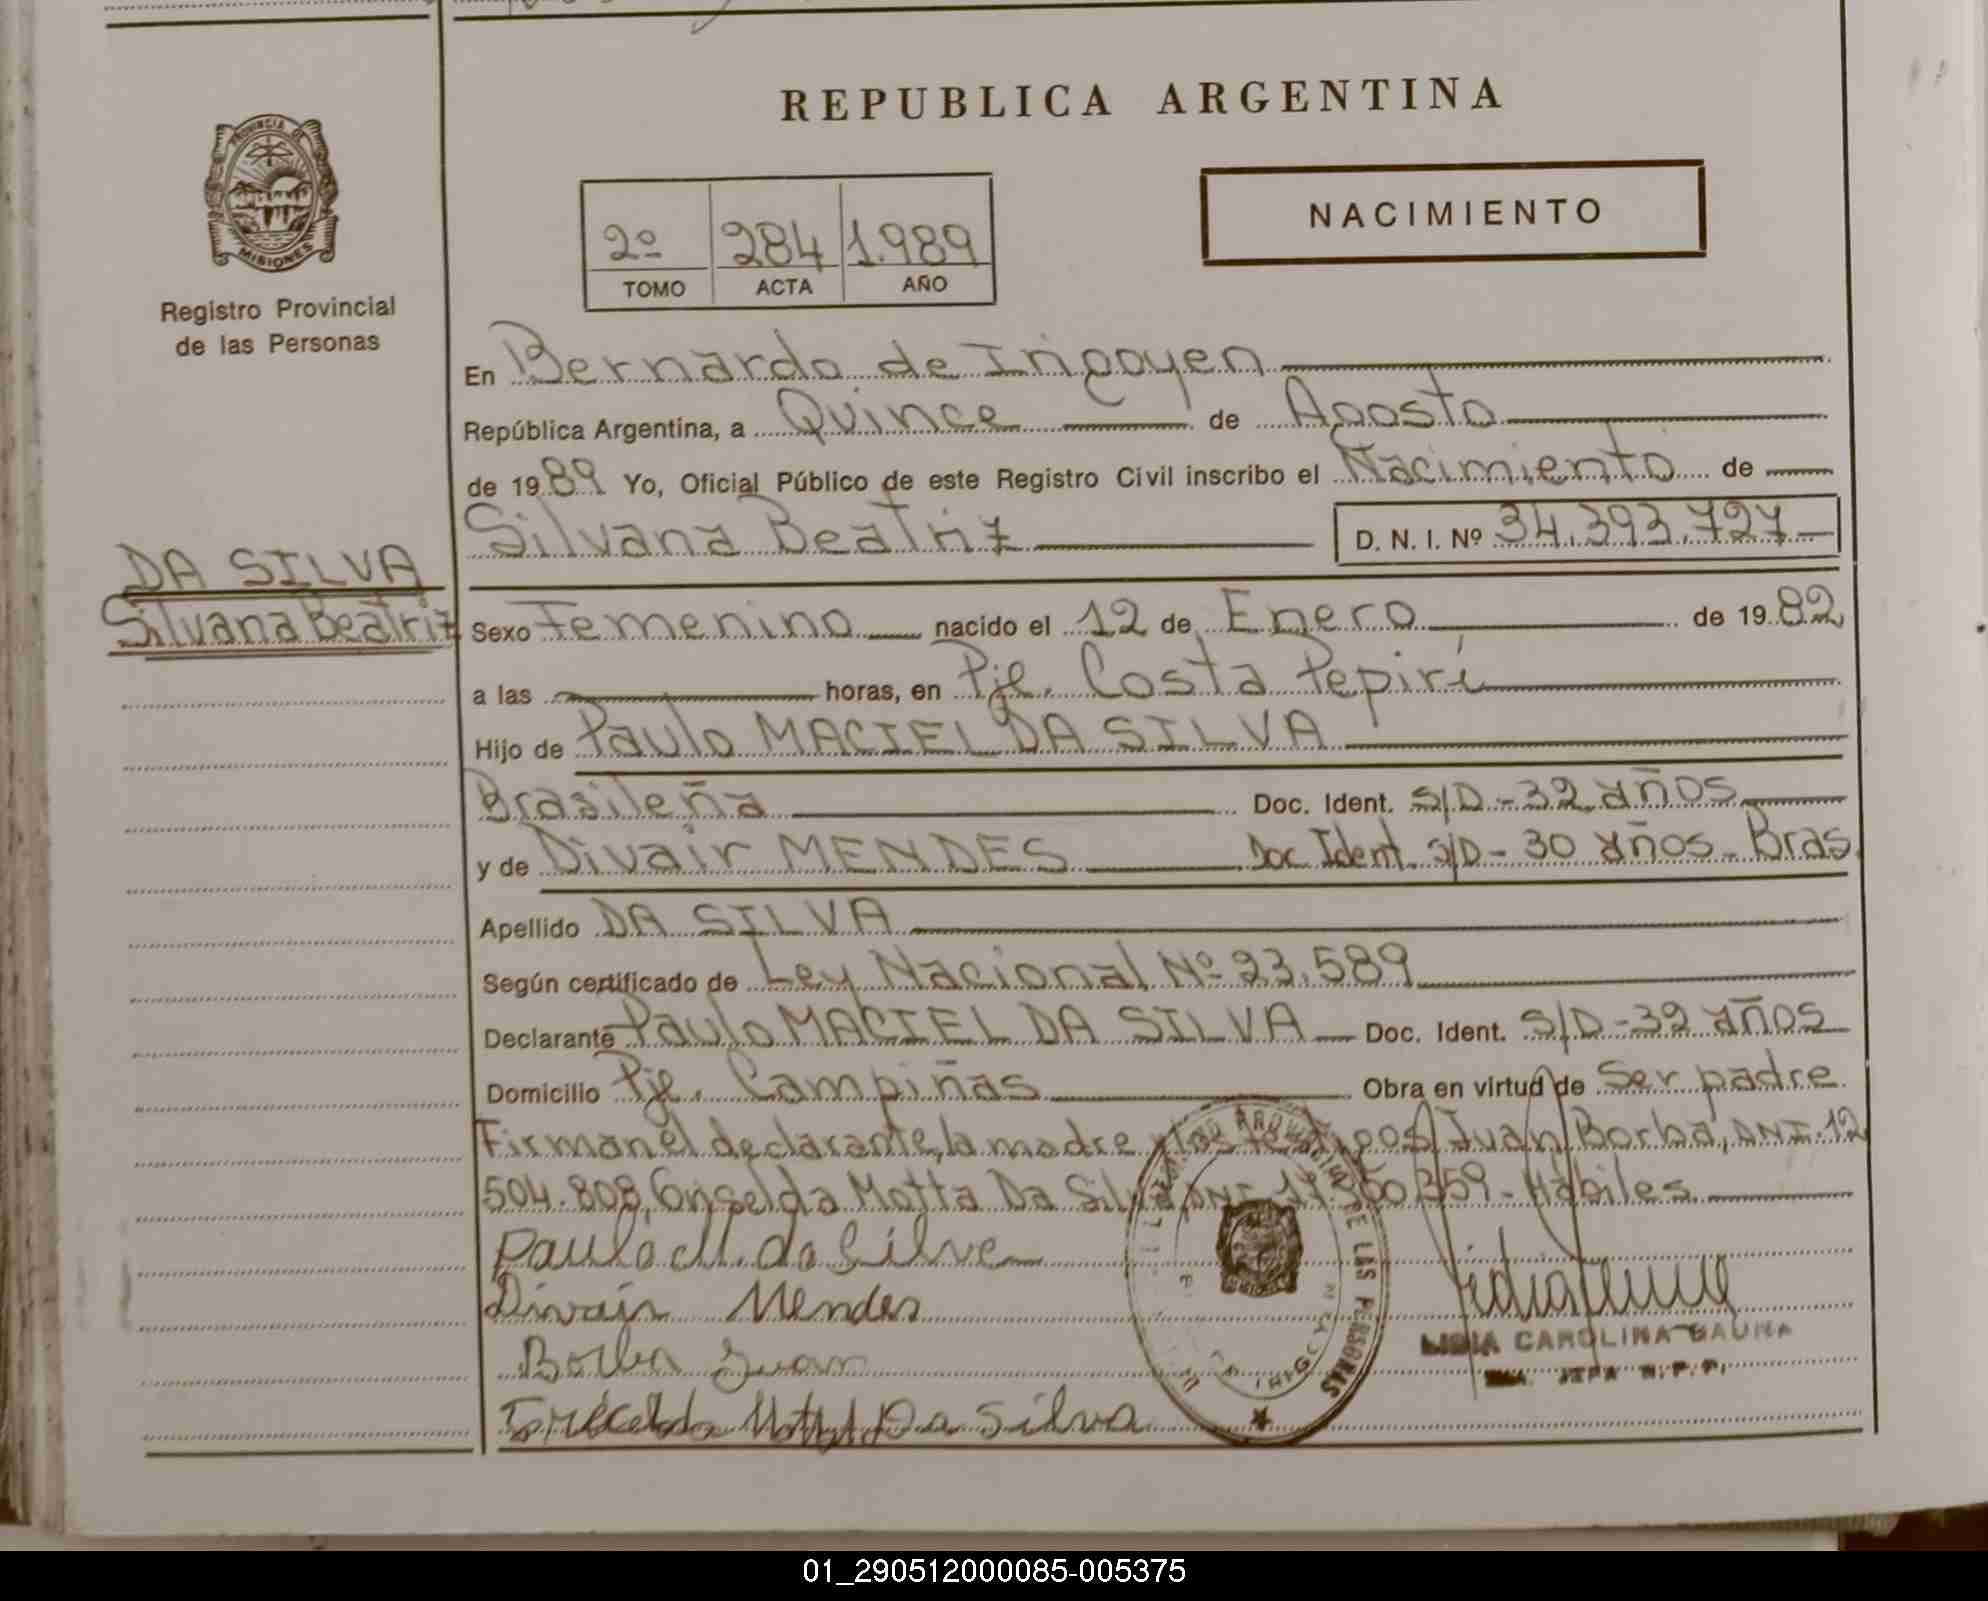 REPUBLICA ARGENTINA
PROVINCIA DE
MISIONES
Registro Provincial
de las Personas
NACIMIENTO
2º 284 1.989
TOMO ACTA AÑO
En Bernardo de Irigoyen
República Argentina, a Quince de Agosto
de 1989 Yo, Oficial Público de este Registro Civil inscribo el Nacimiento de
Silvana Beatriz D. N. I. Nº 34.393.727
DA SILVA
Silvana Beatriz
Sexo Femenino nacido el 12 de Enero de 1982
a las horas, en Pje. Costa Pepirí
Hijo de Paulo MACIEL DA SILVA
Brasileña Doc. Ident. S/D - 32 años
y de Divair MENDES Doc Ident. S/D - 30 años - Bras.
Apellido DA SILVA
Según certificado de Ley Nacional Nº 23.589
Declarante Paulo MACIEL DA SILVA Doc. Ident. S/D - 32 años
Domicilio Pje. Campiñas Obra en virtud de Ser padre
Firman el declarante, la madre y los testigos Juan Borba, DNI. 12
504.808, Griselda Motta Da Silva, DNI - Hábiles
Paulo M. da Silva
Divair Mendes
Borba Juan
Griselda Motta Da Silva
DE LAS PERSONAS
LIDIA CAROLINA GAUNA
JEFA R.P.P.
01_290512000085-005375